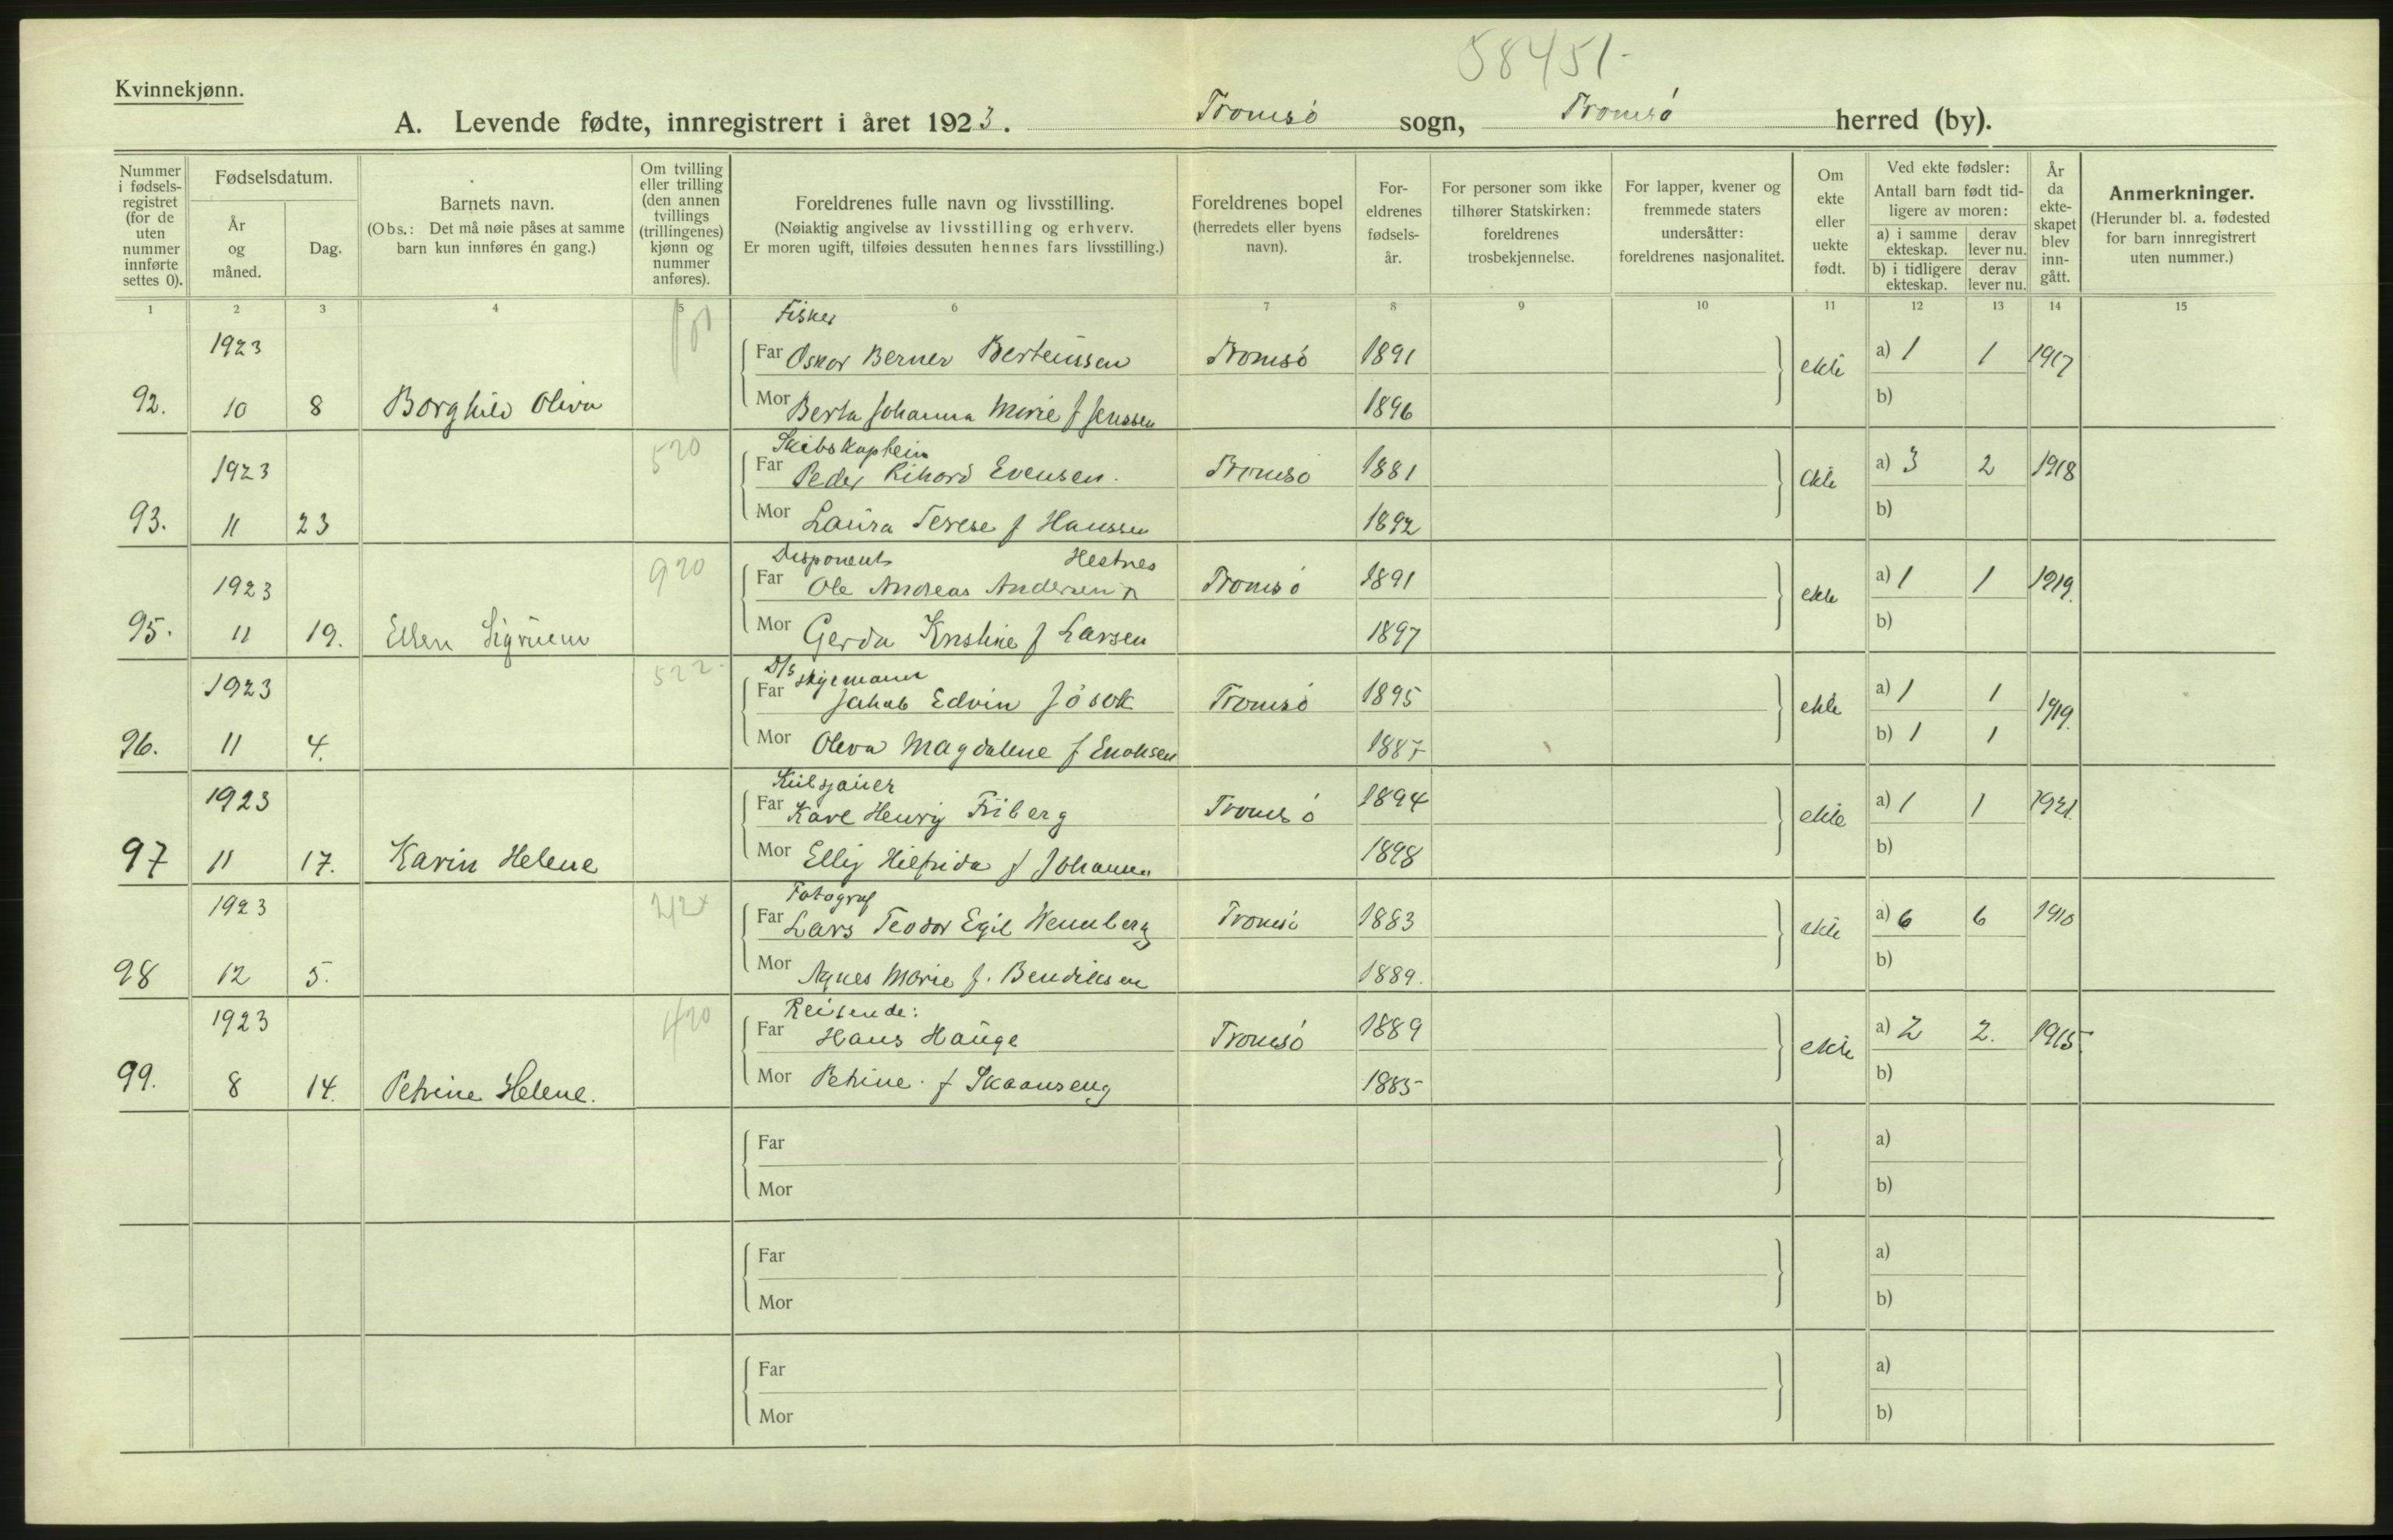 58451-
Kvinnekjønn.
A. Levende fødte, innregistrert i året 1923. Tromsø sogn, Tromsø herred (by).
Nummer i fødsels-registret (for de uten nummer innførte settes 0).
Fødselsdatum.
År og måned.
Dag.
Barnets navn.
(Obs.: Det må nøie påses at samme barn kun innføres én gang.)
Om tvilling eller trilling (den annen tvillings (trillingenes) kjønn og nummer anføres).
Foreldrenes fulle navn og livsstilling.
(Nøiaktig angivelse av livsstilling og erhverv.
Er moren ugift, tilføies dessuten hennes fars livsstilling.)
Foreldrenes bopel (herredets eller byens navn).
For-eldrenes fødsels-år.
For personer som ikke tilhører Statskirken: foreldrenes trosbekjennelse.
For lapper, kvener og fremmede staters undersåtter: foreldrenes nasjonalitet.
Om ekte eller uekte født.
Ved ekte fødsler:
Antall barn født tid-ligere av moren:
a) i samme ekteskap. derav lever nu.
b) i tidligere ekteskap. derav lever nu.
År da ekte-skapet blev inn-gått.
Anmerkninger.
(Herunder bl. a. fødested for barn innregistrert uten nummer.)
1 2 3 4 5 6 7 8 9 10 11 12 13 14 15
Fisker
1923 Far Oskar Berner Berteussen Tromsö 1891 ekte a) 1 1 1917
92. 10 8 Borghild Oliva Mor Berta Johanna Marie f Jenssen 1896 b)
520 Skibskaptein
1923 Far Peder Rikard Evensen. Tromsö 1881 ekte a) 3 2 1918
93. 11 23 Mor Laura Terese f Hanssen 1892 b)
920 Disponent Hestnes
1923 Far Ole Andreas Andersen Tromsö 1891 ekte a) 1 1 1919.
95. 11 19. Ellen Mor Gerda Kristine f Larsen 1897 b)
522- D/S
1923 Far Jakob Edvin Jösok Tromsö 1895 ekte a) 1 1 1919.
96. 11 4. Mor Oleva Magdalene f Enoksen 1887 b) 1 1
1923 Far Henry Friberg Tromsö 1894 ekte a) 1 1 1921.
97 11 17. Karin Helene Mor Elly Hilfrida f 1898 b)
Fotograf
1923 Far Lars Teodor Egil Wennberg Tromsö 1883 ekte a) 6 6 1910
98 12 5. Mor Agnes Marie f. Bendiksen 1889. b)
420 Reisende:
1923 Far Hans Hauge Tromsö 1889 ekte a) 2 2. 1915
99. 8 14. Petrine Helene. Mor Petrine. f Skaanseng 1885 b)
Far a)
Mor b)
Far a)
Mor b)
Far a)
Mor b)